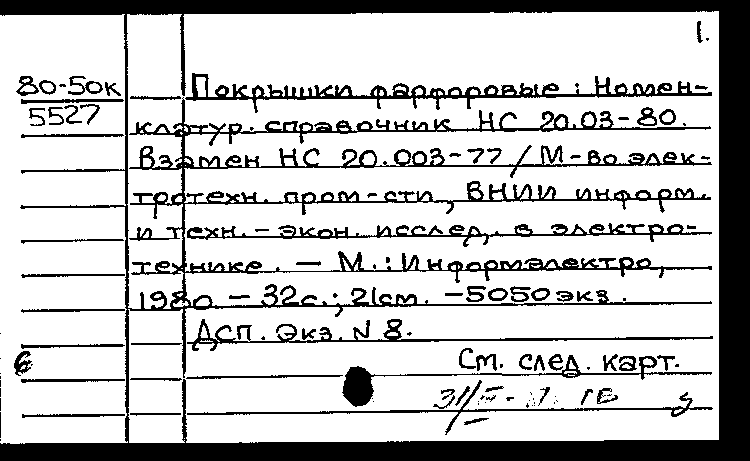 1.
80-50к
5527
Покрышки фарфоровые : Номен-
клатур. справочник НС 20.03-80.
Взамен НС 20.003-77 / М-во элек-
тротехн. пром-сти, ВНИИ информ.
и техн.-экон. исслед. в электро-
технике. — М. : Информэлектро,
1980. — 32с. ; 21см. — 5050 экз.
ДСП. Экз. N 8.
См. след. карт.